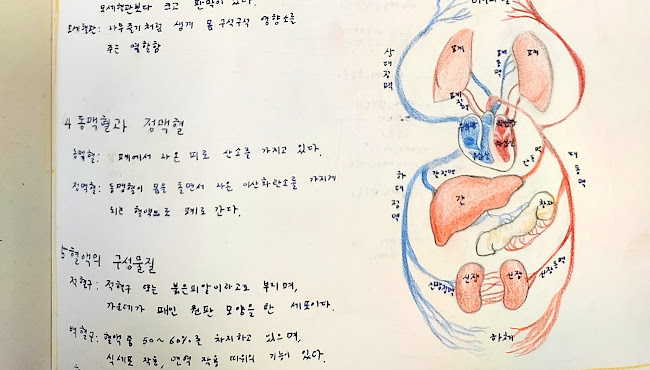 모세혈관보다 크고 판막이 있다.
모세혈관: 나무줄기처럼 생겨 몸 구석구석 영향소를
주는 역할함
4 동맥혈과 정맥혈
동맥혈: 폐에서 나온 피로 산소를 가지고 있다.
정맥혈: 동맥혈이 몸을 돌면서 나온 이산화탄소를 가지게
되는 혈액으로 폐로 간다.
5 혈액의 구성물질
적혈구: 적혈구 또는 붉은피알이라고도 부르며,
가운데가 패인 원판 모양을 한 세포이다.
백혈구: 혈액 중 50~60%를 차지하고 있으며,
식세포 작용, 면역 작용 따위의 기능이 있다.
상대정맥
폐
폐동맥
폐
폐정맥
하대정맥
간정맥
간동맥
대동맥
간
창자
신장정맥
신장
신장
신장동맥
하체